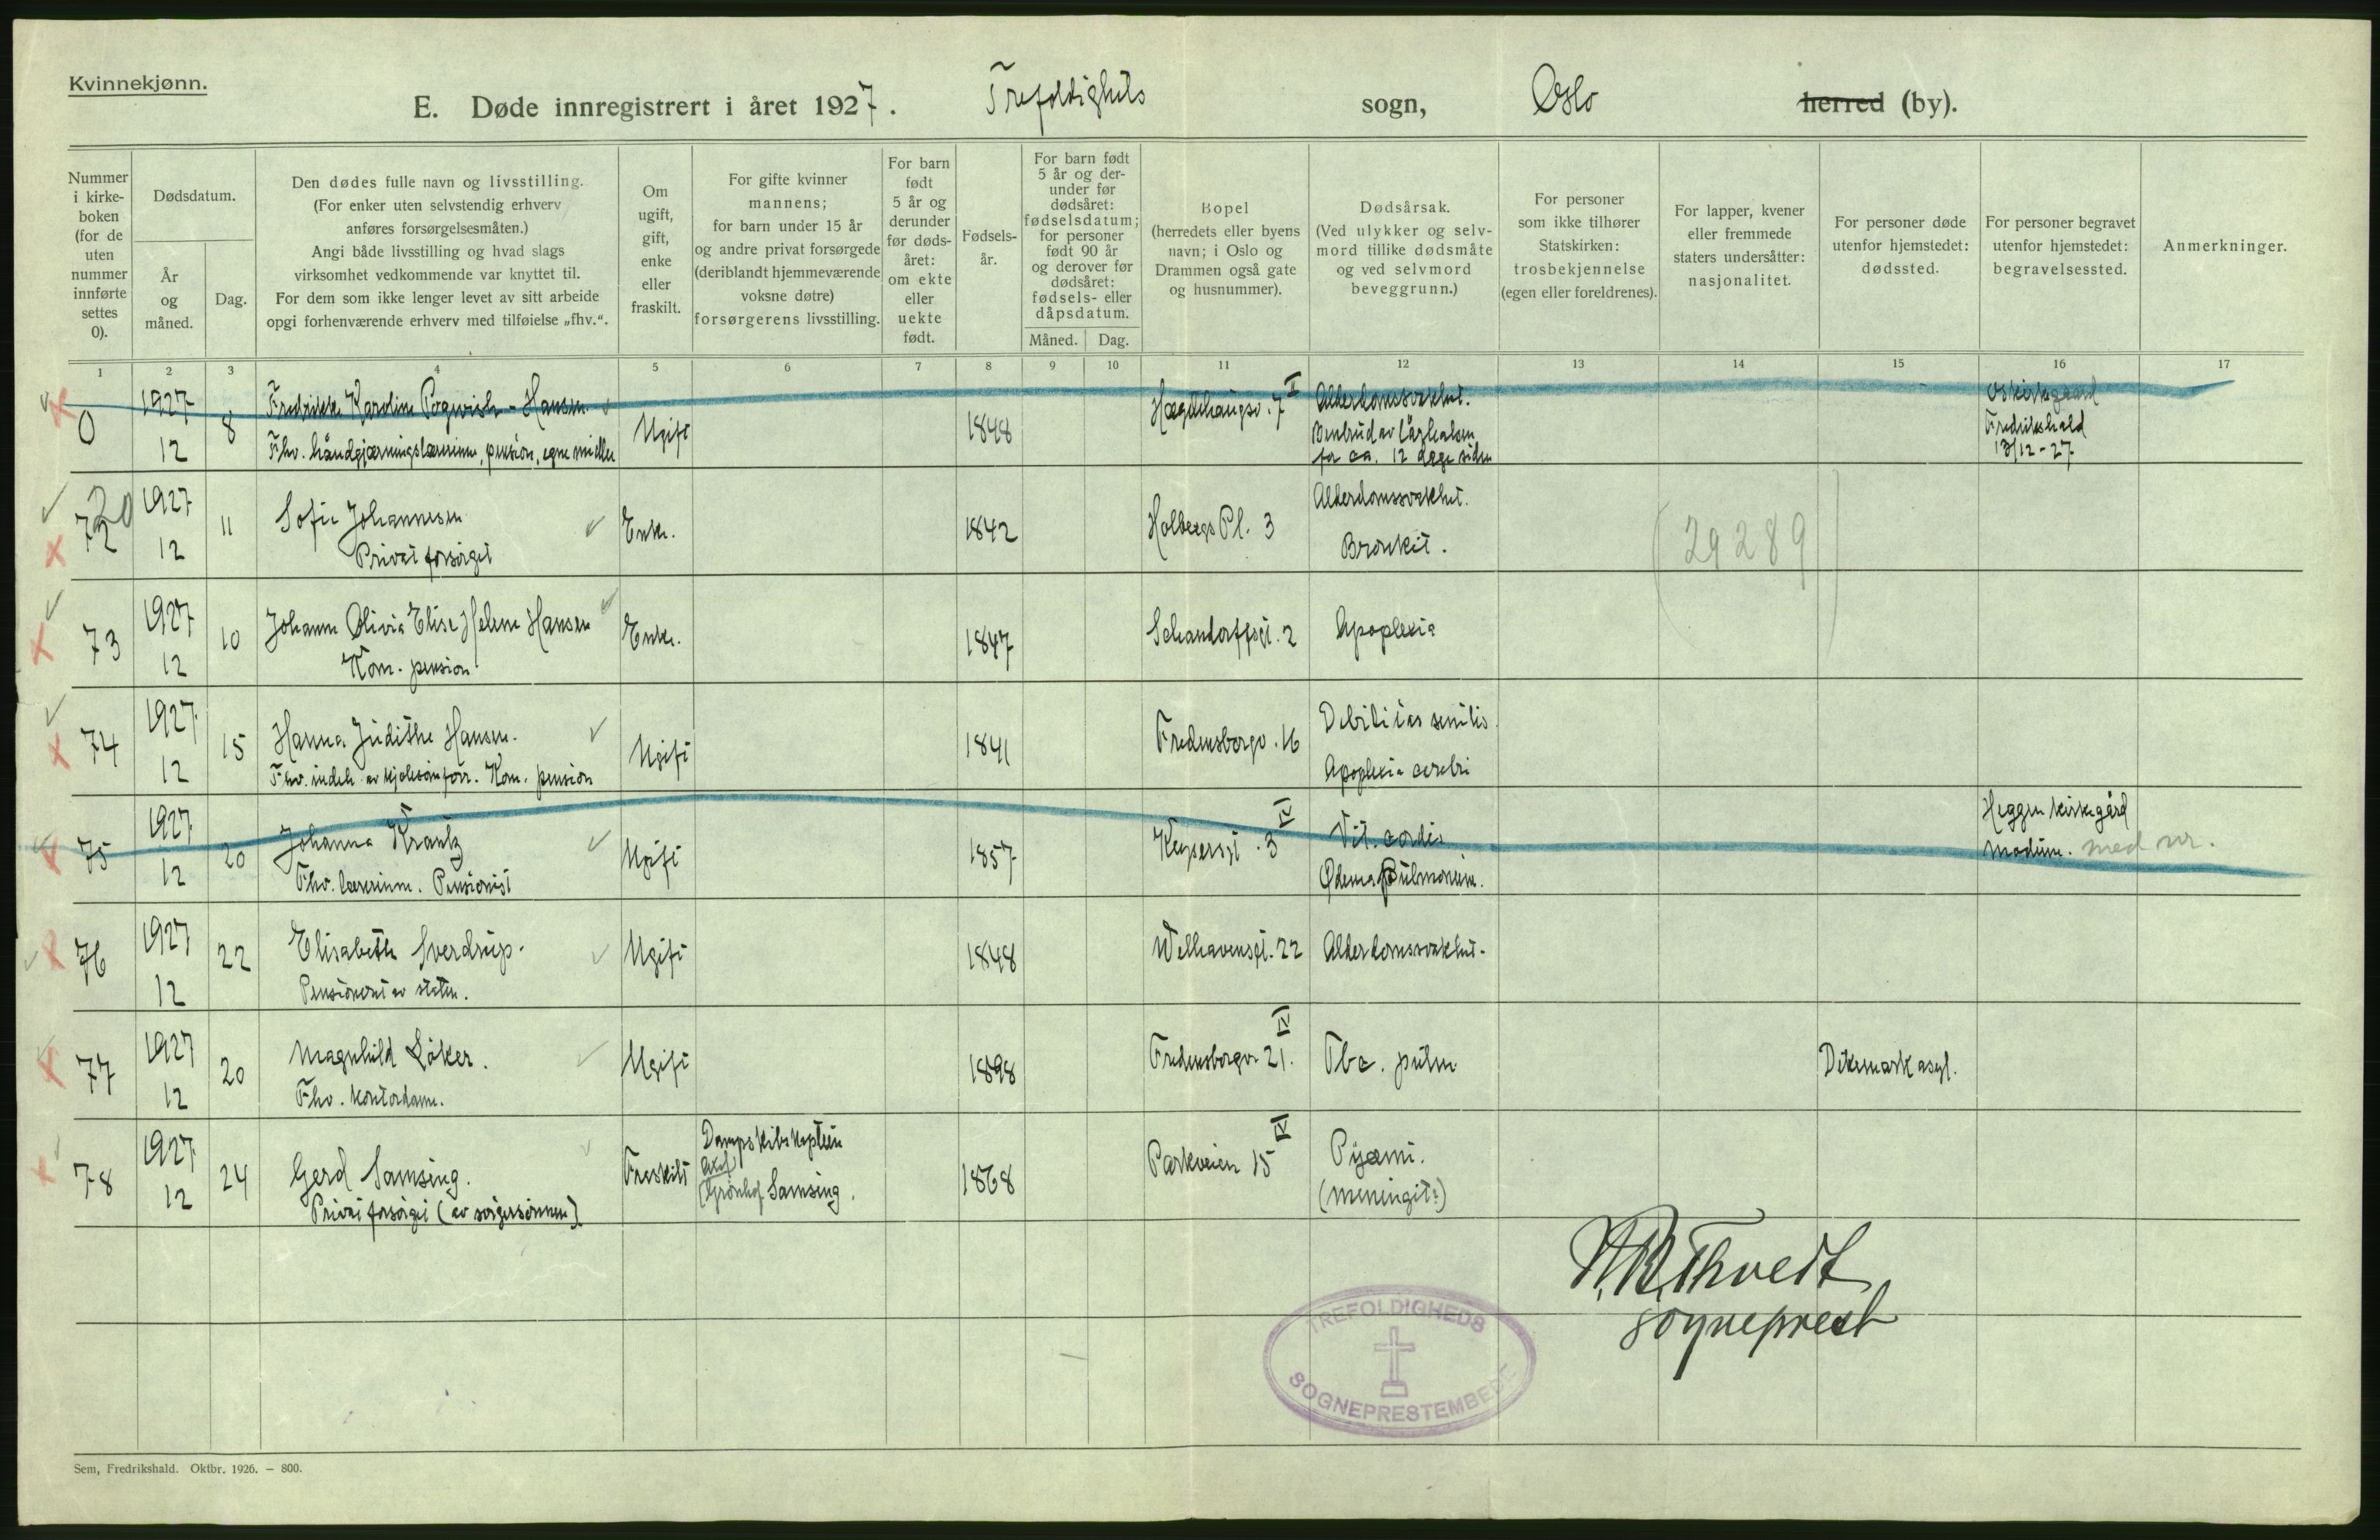 Kvinnekjønn.
E. Døde innregistrert i året 1927. Trefoldighets sogn, Oslo herred (by).
Nummer i kirke-boken (for de uten nummer innførte settes 0).
Dødsdatum.
År og måned.
Dag.
Den dødes fulle navn og livsstilling.
(For enker uten selvstendig erhverv
anføres forsørgelsesmåten.)
Angi både livsstilling og hvad slags
virksomhet vedkommende var knyttet til.
For dem som ikke lenger levet av sitt arbeide
opgi forhenværende erhverv med tilføielse „fhv.“.
Om
ugift,
gift,
enke
eller
fraskilt.
For gifte kvinner
mannens;
for barn under 15 år
og andre privat forsørgede
(deriblandt hjemmeværende
voksne døtre)
forsørgerens livsstilling.
For barn
født
5 år og
derunder
før døds-
året:
om ekte
eller
uekte
født.
Fødsels-
år.
For barn født
5 år og der-
under før
dødsåret:
fødselsdatum;
for personer
født 90 år
og derover før
dødsåret:
fødsels- eller
dåpsdatum.
Måned. Dag.
Bopel
(herredets eller byens
navn; i Oslo og
Drammen også gate
og husnummer).
Dødsårsak.
(Ved ulykker og selv-
mord tillike dødsmåte
og ved selvmord
beveggrunn.)
For personer
som ikke tilhører
Statskirken:
trosbekjennelse
(egen eller foreldrenes).
For lapper, kvener
eller fremmede
staters undersåtter:
nasjonalitet.
For personer døde
utenfor hjemstedet:
dødssted.
For personer begravet
utenfor hjemstedet:
begravelsessted.
Anmerkninger.
1 2 3 4 5 6 7 8 9 10 11 12 13 14 15 16 17
0 1927 12 8 Fredrikke Karoline Pogwisch-Hansen
Fhv. håndgjærningslærerinne, pension, egne midler
Ugift 1848 Hægdehaugsv. 7 II
Alderdomssvakhet.
Benbrud av lårhalsen
for ca. 12 dage siden
Os kirkegaard
Fredrikshald
13/12-27
20
72 1927 12 11 Sofie Johannesen
Privat forsørget
Enke. 1842 Holbergs Pl. 3
Alderdomssvakhet.
Bronkit.
(29289)
73 1927 12 10 Johanne Olivia Elise Helene Hansen
Kom. pension
Enke. 1847 Schandorffsgt. 2 Apoplexia
74 1927 12 15 Hanna Judithe Hansen.
Fhv. indeh. av kjolesømforr. Kom. pension
Ugift 1841 Fredensborgv. 16
Debilitas senilis.
Apoplexia cerebri
75 1927 12 20 Johanna Krantz
Fhv. lærerinne. Pensionist
Ugift 1857 Keysersgt. 3 IV
Vit. cordis
Ødema pulmonum.
Heggen kirkegård
Modum. med nr.
76 1927 12 22 Elisabeth Sverdrup.
Pensionert av staten.
Ugift 1848 Welhavensgt. 22 Alderdomssvakhet.
77 1927 12 20 Magnhild Løker.
Fhv. kontordame.
Ugift 1898 Fredensborgv. 21. IV Tbc. pulm. Dikemark asyl.
78 1927 12 24 Gerd Samsing.
Privat forsørget (av svigersønnen)
Fraskilt
Dampskibskaptein
Samsing.
1868 Parkveien 15 IV
Pyæmi.
(meningit?)
Thvedt
sogneprest
TREFOLDIGHEDS
SOGNEPRESTEMBEDE
Sem, Fredrikshald. Oktbr. 1926. – 800.